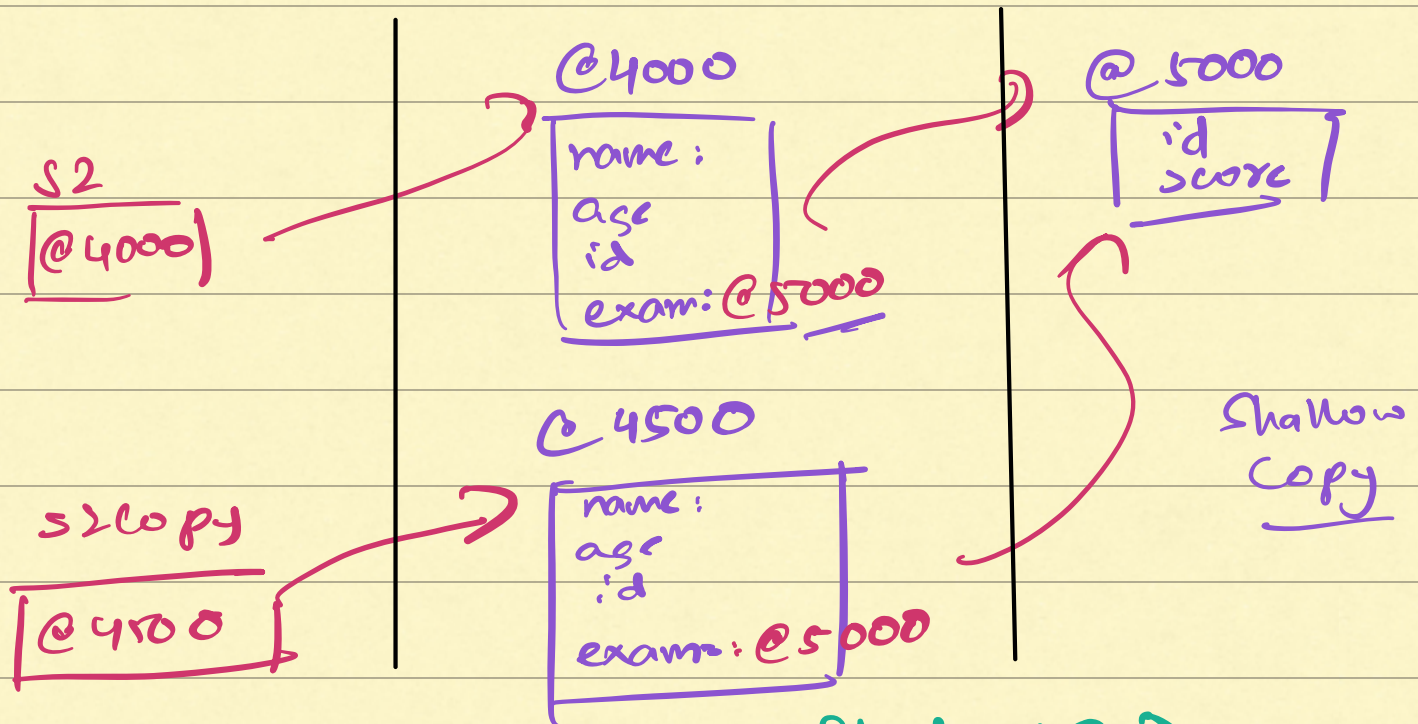 S2
@4000
@4000
name:
age
id
exam: @5000
@ 5000
id
score
s2copy
@4500
@ 4500
name:
age
id
exam: @5000
Shallow
Copy